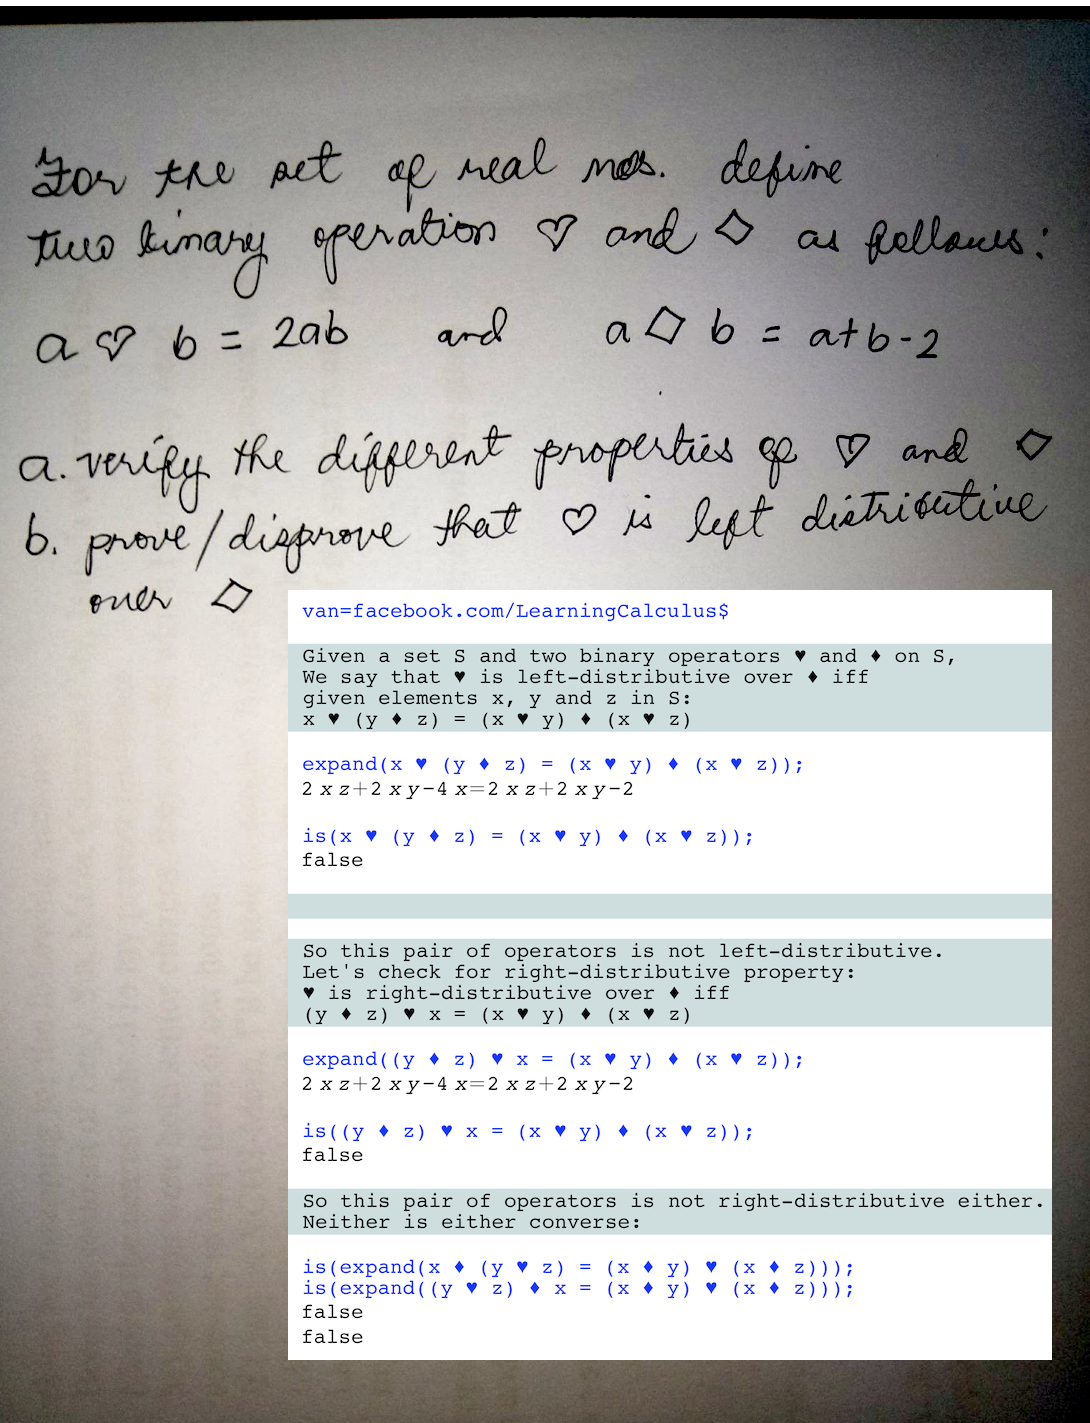 For the set of real nos. define
two binary operation ♡ and ◇ as follows:
a ♡ b = 2ab and a ◇ b = a+b-2
a. verify the different properties of ♡ and ◇
b. prove/disprove that ♡ is left distributive
over ◇
van=facebook.com/LearningCalculus$
Given a set S and two binary operators ♥ and ♦ on S,
We say that ♥ is left-distributive over ♦ iff
given elements x, y and z in S:
x ♥ (y ♦ z) = (x ♥ y) ♦ (x ♥ z)
expand(x ♥ (y ♦ z) = (x ♥ y) ♦ (x ♥ z));
2 x z+2 x y-4 x=2 x z+2 x y-2
is(x ♥ (y ♦ z) = (x ♥ y) ♦ (x ♥ z));
false
So this pair of operators is not left-distributive.
Let's check for right-distributive property:
♥ is right-distributive over ♦ iff
(y ♦ z) ♥ x = (x ♥ y) ♦ (x ♥ z)
expand((y ♦ z) ♥ x = (x ♥ y) ♦ (x ♥ z));
2 x z+2 x y-4 x=2 x z+2 x y-2
is((y ♦ z) ♥ x = (x ♥ y) ♦ (x ♥ z));
false
So this pair of operators is not right-distributive either.
Neither is either converse:
is(expand(x ♦ (y ♥ z) = (x ♦ y) ♥ (x ♦ z)));
is(expand((y ♥ z) ♦ x = (x ♦ y) ♥ (x ♦ z)));
false
false